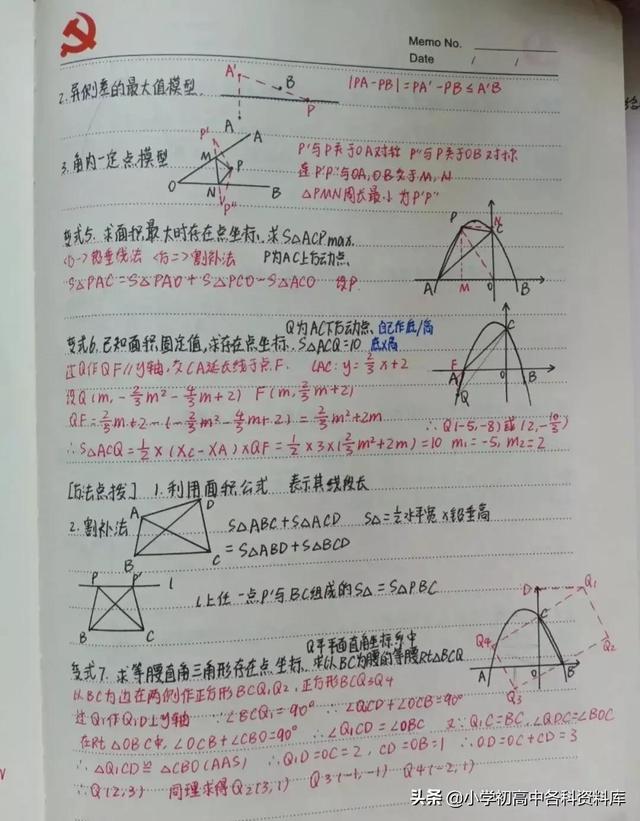 Memo No.
Date / /
2. 异侧差的最大值模型.
A' B P A
|PA-PB|=PA'-PB≤A'B
3. 角内一定点模型
P' A M P O N B P''
P'与P关于OA对称 P''与P关于OB对称
连P'P''与OA,OB交于M,N
△PMN周长最小为P'P''
变式5. 求面积最大时存在点坐标, 求S△ACPmax.
<方一>铅垂线法 <方二>割补法 P为AC上方动点.
S△PAC=S△PAO+S△PCO-S△ACO 设P
P N C A M O B
Q为AC下方动点、自己作底/高
变式6. 已知面积固定值,求存在点坐标. S△ACQ=10 底×高
过Q作QF//y轴,交CA延长线于点F. lAC: y=2/3x+2
设Q(m, -2/3m²-4/3m+2) F(m, 2/3m+2)
QF=2/3m+2-(-2/3m²-4/3m+2)=2/3m²+2m
∴Q(-5,-8)或(2,-10/3)
∴S△ACQ=1/2×(xC-xA)×QF=1/2×3×(2/3m²+2m)=10 m₁=-5, m₂=2
C F A O B Q
[方法点拨] 1. 利用面积公式 表示其线段长
2. 割补法
A D B C
S△ABC+S△ACD S△=1/2水平宽×铅垂高
=S△ABD+S△BCD
P P' l B C
l上任一点P'与BC组成的S△=S△PBC
Q平面直角坐标系中
变式7. 求等腰直角三角形存在点坐标. 求以BC为腰的等腰Rt△BCQ
以BC为边在两侧作正方形BCQ₁Q₂, 正方形BCQ₃Q₄
过Q₁作Q₁D⊥y轴 ∵∠BCQ₁=90° ∴∠QCD+∠OCB=90°
在Rt△OBC中, ∠OCB+∠CBO=90° ∴∠Q₁CD=∠OBC 又∵Q₁C=BC, ∠QDC=∠BOC
∴△Q₁CD≌△CBO(AAS) ∴Q₁D=OC=2, CD=OB=1 ∴OD=OC+CD=3
∴Q₁(2,3) 同理求得Q₂(3,1) Q₃(-1,-1) Q₄(-2,1)
D Q₁ C Q₄ Q₂ A O B Q₃
头条 @小学初高中各科资料库